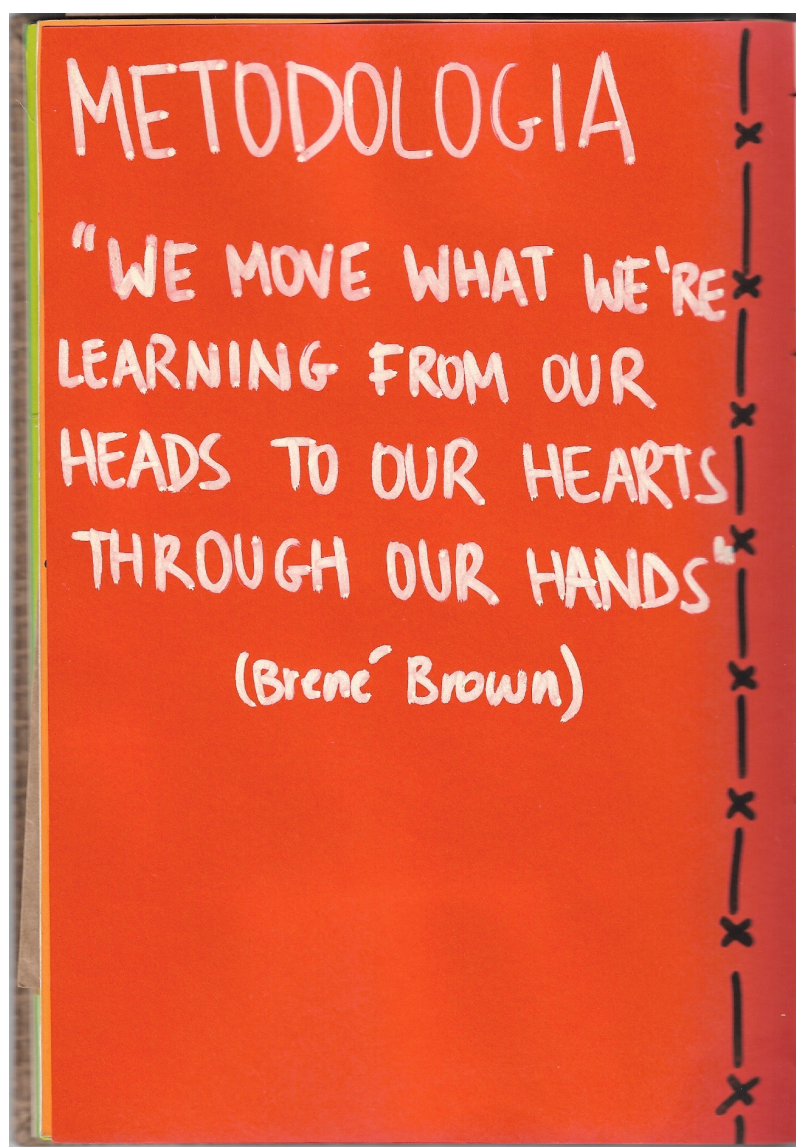 METODOLOGIA
"WE MOVE WHAT WE'RE
LEARNING FROM OUR
HEADS TO OUR HEARTS
THROUGH OUR HANDS"
(Brené Brown)